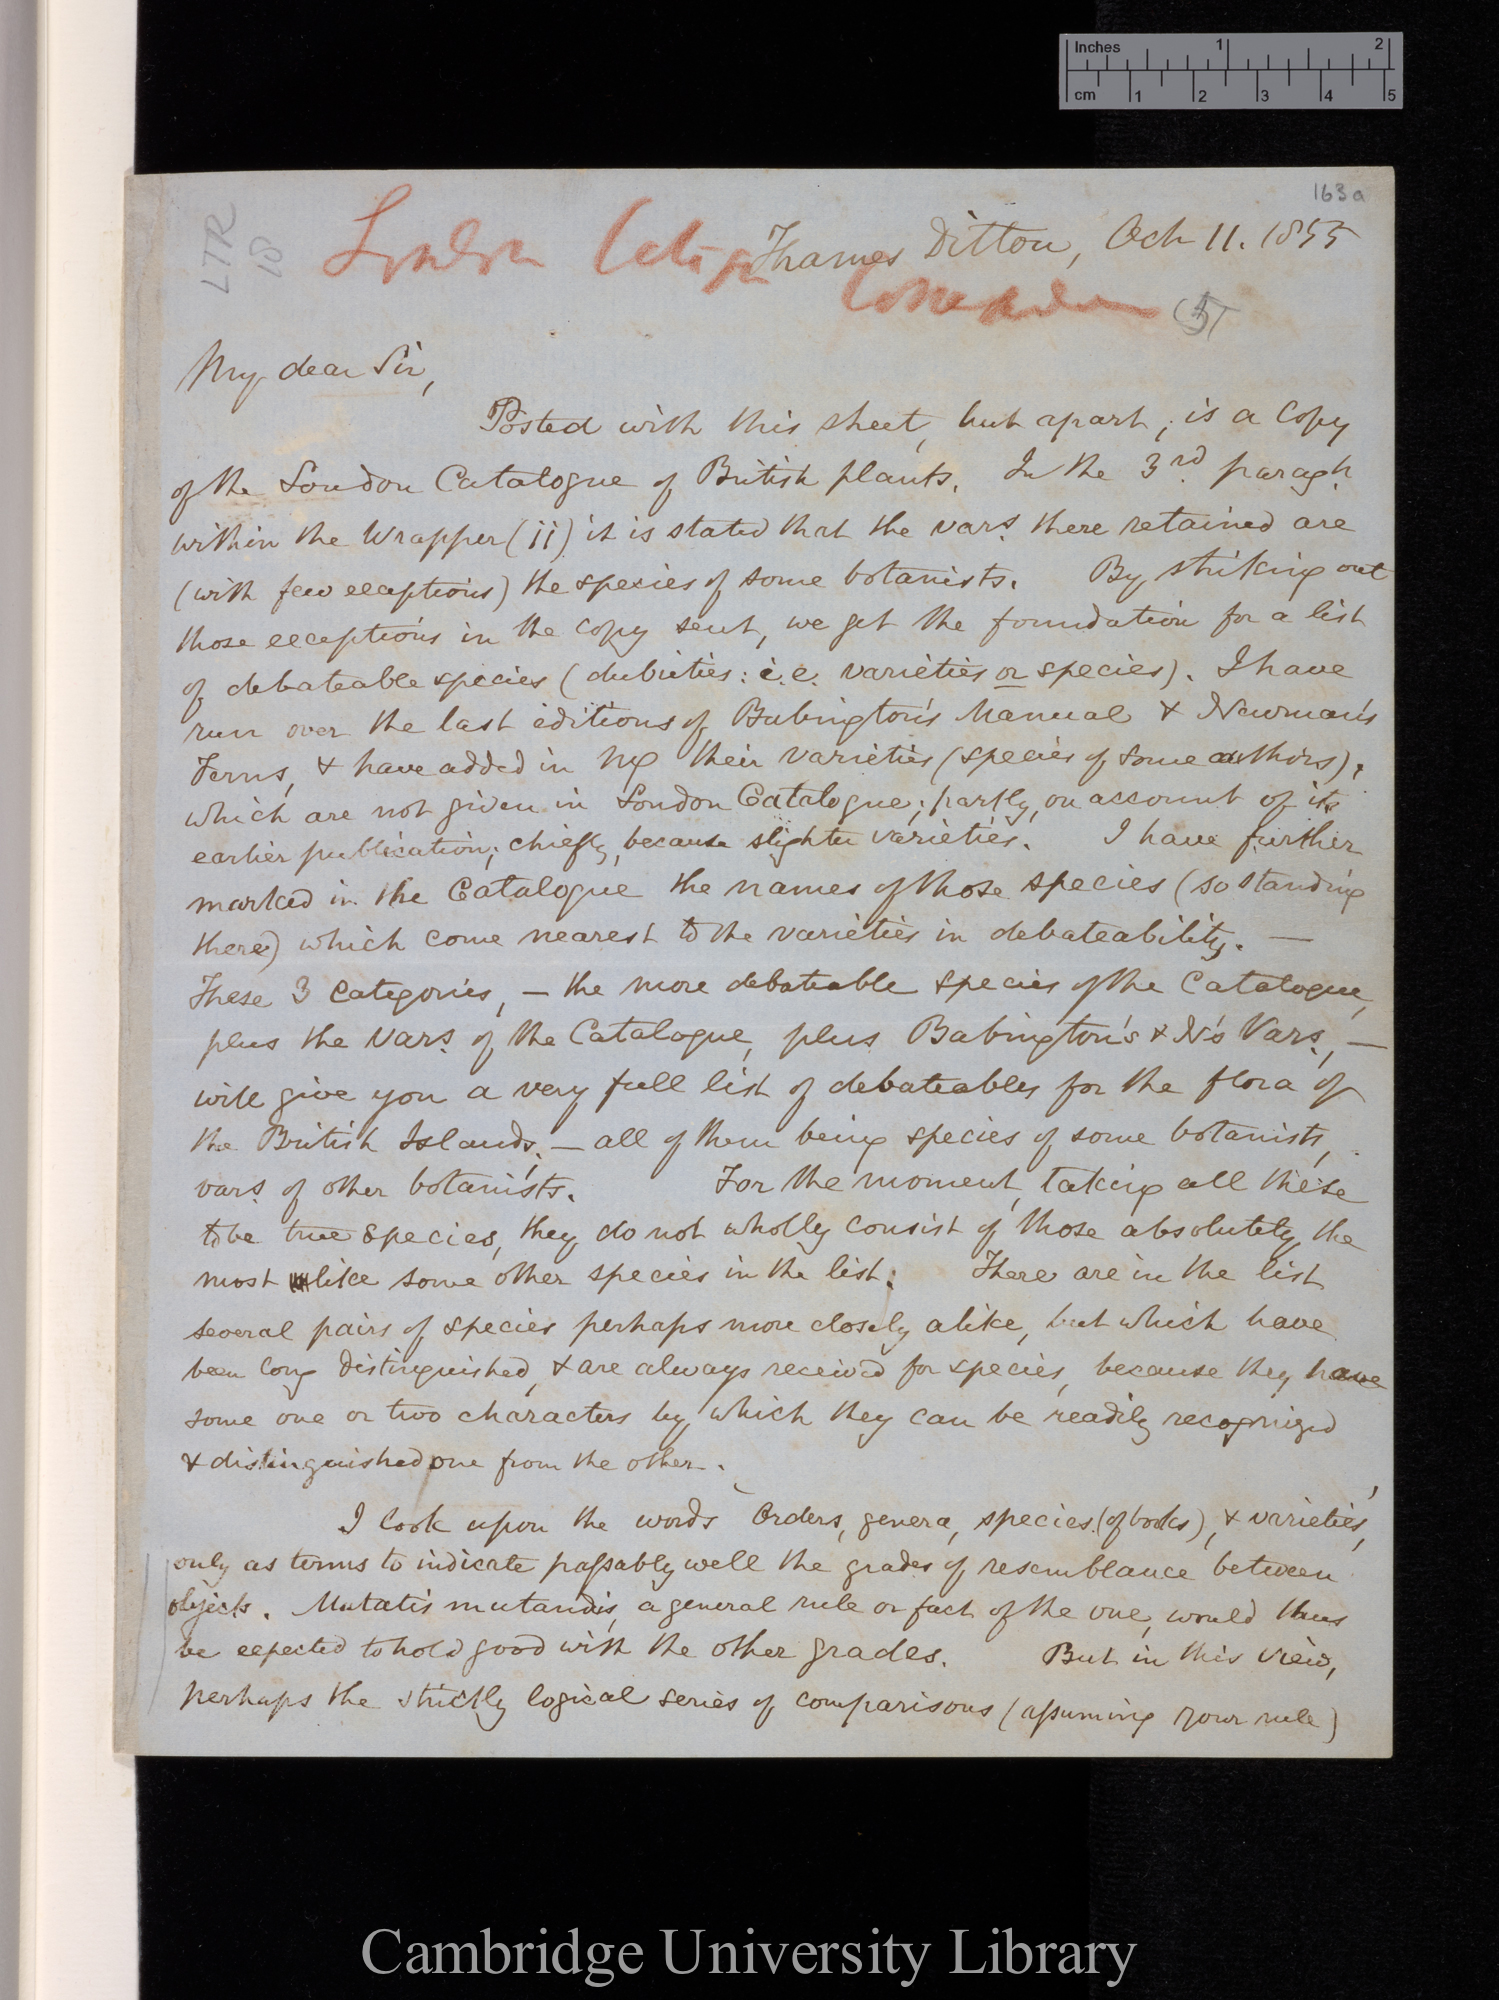 Inches 1 2
cm 1 2 3 4 5
163a
LTR
18
London Catalogue
Thames Ditton, Oct 11. 1855
(5)
My dear Sir,
Posted with this sheet, but apart, is a Copy
of the London Catalogue of British plants. In the 3rd. paragh.
within the Wrapper (ii) it is stated that the vars. there retained are
(with few exceptions) the species of some botanists. By striking out
those exceptions in the copy sent, we get the foundation for a list
of debateable species (dubieties: i.e. varieties or species). I have
run over the last editions of Babington's Manual & Newman's
Ferns, & have added in MS their varieties (species of some authors),
which are not given in London Catalogue; partly, on account of its
earlier publication; chiefly, because slighter varieties. I have further
marked in the Catalogue the names of those species (so standing
there) which come nearest to the varieties in debateability. —
These 3 Categories, — the more debateable species of the Catalogue,
plus the Vars. of the Catalogue, plus Babington's & N's Vars., —
will give you a very full list of debateables for the flora of
the British Islands, — all of them being species of some botanists,
vars. of other botanists. For the moment, taking all these
to be true species, they do not wholly consist of those absolutely the
most like some other species in the list. There are in the list
several pairs of species perhaps more closely alike, but which have
been long distinguished, & are always received for species, because they have
some one or two characters by which they can be readily recognized
& distinguished one from the other.
I look upon the words Orders, genera, species (of books), & varieties,
only as terms to indicate passably well the grades of resemblance between
objects. Mutatis mutandis, a general rule or fact of the one, would thus
be expected to hold good with the other grades. But in this view,
perhaps the strictly logical series of comparisons (assuming your rule)
Cambridge University Library